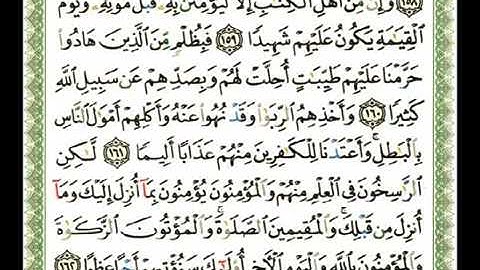 ﴿١٥٨﴾ وَإِن مِّنْ أَهْلِ ٱلْكِتَٰبِ إِلَّا لَيُؤْمِنَنَّ بِهِۦ قَبْلَ مَوْتِهِۦ وَيَوْمَ
ٱلْقِيَٰمَةِ يَكُونُ عَلَيْهِمْ شَهِيدًا ﴿١٥٩﴾ فَبِظُلْمٍ مِّنَ ٱلَّذِينَ هَادُوا۟
حَرَّمْنَا عَلَيْهِمْ طَيِّبَٰتٍ أُحِلَّتْ لَهُمْ وَبِصَدِّهِمْ عَن سَبِيلِ ٱللَّهِ
كَثِيرًا ﴿١٦٠﴾ وَأَخْذِهِمُ ٱلرِّبَوٰا۟ وَقَدْ نُهُوا۟ عَنْهُ وَأَكْلِهِمْ أَمْوَٰلَ ٱلنَّاسِ
بِٱلْبَٰطِلِ ۚ وَأَعْتَدْنَا لِلْكَٰفِرِينَ مِنْهُمْ عَذَابًا أَلِيمًا ﴿١٦١﴾ لَّٰكِنِ
ٱلرَّٰسِخُونَ فِى ٱلْعِلْمِ مِنْهُمْ وَٱلْمُؤْمِنُونَ يُؤْمِنُونَ بِمَآ أُنزِلَ إِلَيْكَ وَمَآ
أُنزِلَ مِن قَبْلِكَ ۚ وَٱلْمُقِيمِينَ ٱلصَّلَوٰةَ ۚ وَٱلْمُؤْتُونَ ٱلزَّكَوٰةَ
وَٱلْمُؤْمِنُونَ بِٱللَّهِ وَٱلْيَوْمِ ٱلْءَاخِرِ أُو۟لَٰٓئِكَ سَنُؤْتِيهِمْ أَجْرًا عَظِيمًا ﴿١٦٢﴾